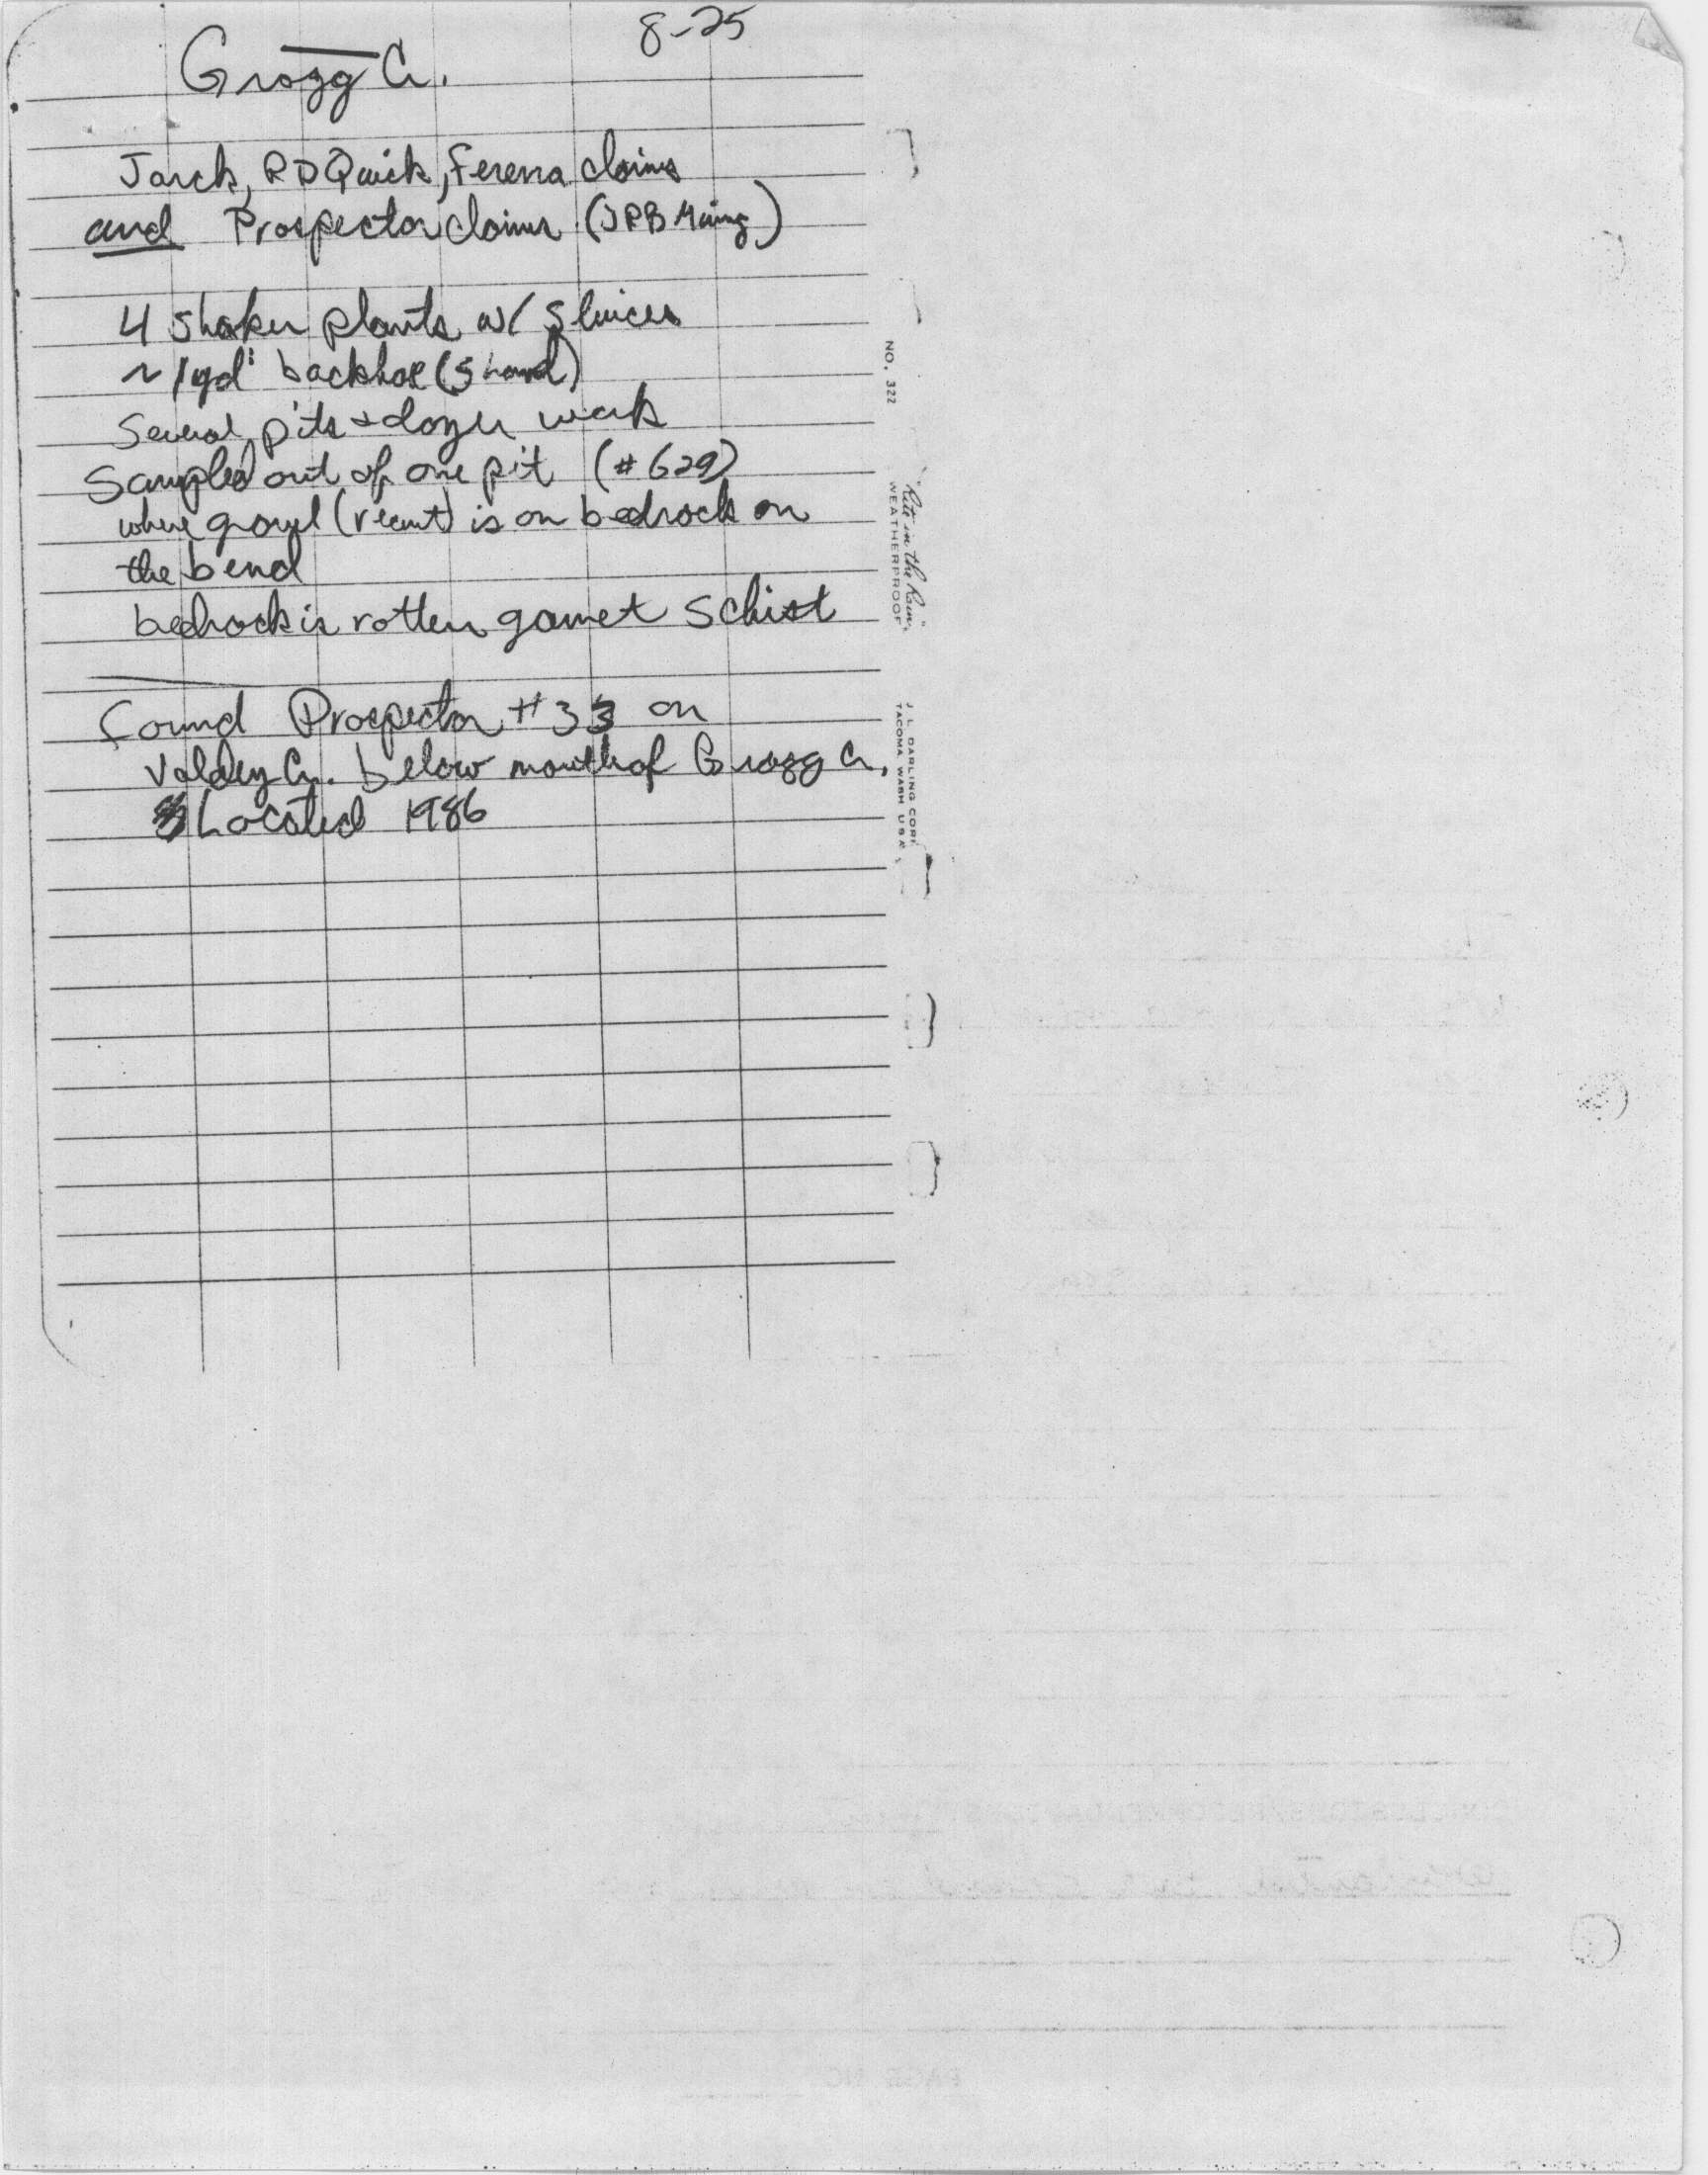 8-25
Grogg Cr.
Jarck, RD Quick, Ferena claims
and Prospector claims (JRB Mining)
4 shaker plants w/ sluices
~ 1yd³ backhoe (Shovel)
Several pits + dozer work
Sampled out of one pit (#629)
where gravel (recent) is on bedrock on
the bend
bedrock is rotten garnet schist
Found Prospector #33 on
Valdez Cr. below mouth of Grogg Cr.
Located 1986
NO. 322
"Rite in the Rain"
WEATHERPROOF
J. L. DARLING CORP.
TACOMA WASH USA
PAGE NO